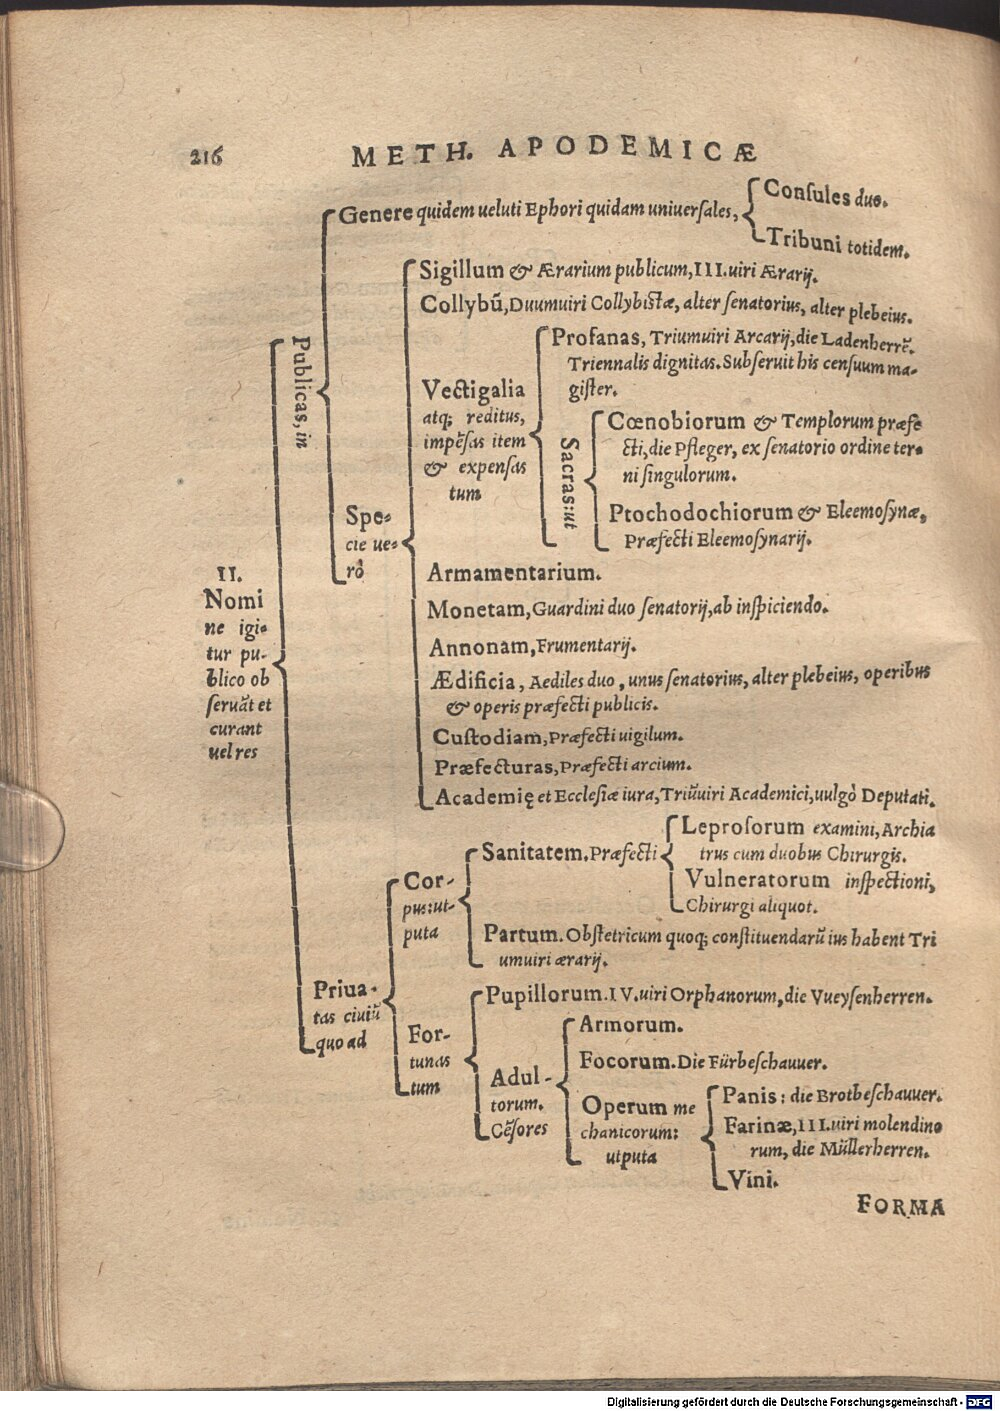 216
METH. APODEMICÆ
II.
Nomi
ne igi-
tur pu-
blico ob
ſeruãt et
curant
uel res
Publicas, in
Genere quidem ueluti Ephori quidam uniuerſales,
Conſules duo.
Tribuni totidem.
Spe-
cie ue-
rò
Sigillum & Ærarium publicum, III.uiri Ærarij.
Collybũ, Duumuiri Collybiſtæ, alter ſenatorius, alter plebeius.
Vectigalia
atq; reditus,
impẽſas item
& expenſas
tum
Profanas, Triumuiri Arcarij, die Ladenherrẽ.
Triennalis dignitas. Subſeruit his cenſuum ma-
giſter.
Sacras: ut
Cœnobiorum & Templorum præfe
cti, die Pfleger, ex ſenatorio ordine ter-
ni ſingulorum.
Ptochodochiorum & Eleemoſynæ,
Præfecti Eleemoſynarij.
Armamentarium.
Monetam, Guardini duo ſenatorij, ab inſpiciendo.
Annonam, Frumentarij.
Ædificia, Aediles duo, unus ſenatorius, alter plebeius, operibus
& operis præfecti publicis.
Cuſtodiam, Præfecti uigilum.
Præfecturas, Præfecti arcium.
Academię et Eccleſiæ iura, Triũuiri Academici, uulgò Deputati.
Priua-
tas ciuiũ
quo ad
Cor-
pus: ut-
puta
Sanitatem. Præfecti
Leproſorum examini, Archia
trus cum duobus Chirurgis.
Vulneratorum inſpectioni,
Chirurgi aliquot.
Partum. Obſtetricum quoq; conſtituendarũ ius habent Tri
umuiri ærarij.
For-
tunas
tum
Pupillorum. IV.uiri Orphanorum, die Vueyſenherren.
Adul-
torum.
Cẽſores
Armorum.
Focorum. Die Fürbeſchauuer.
Operum me
chanicorum:
utputa
Panis: die Brotbeſchauuer.
Farinæ, III.uiri molendino
rum, die Müllerherren.
Vini.
FORMA
Digitalisierung gefördert durch die Deutsche Forschungsgemeinschaft - DFG